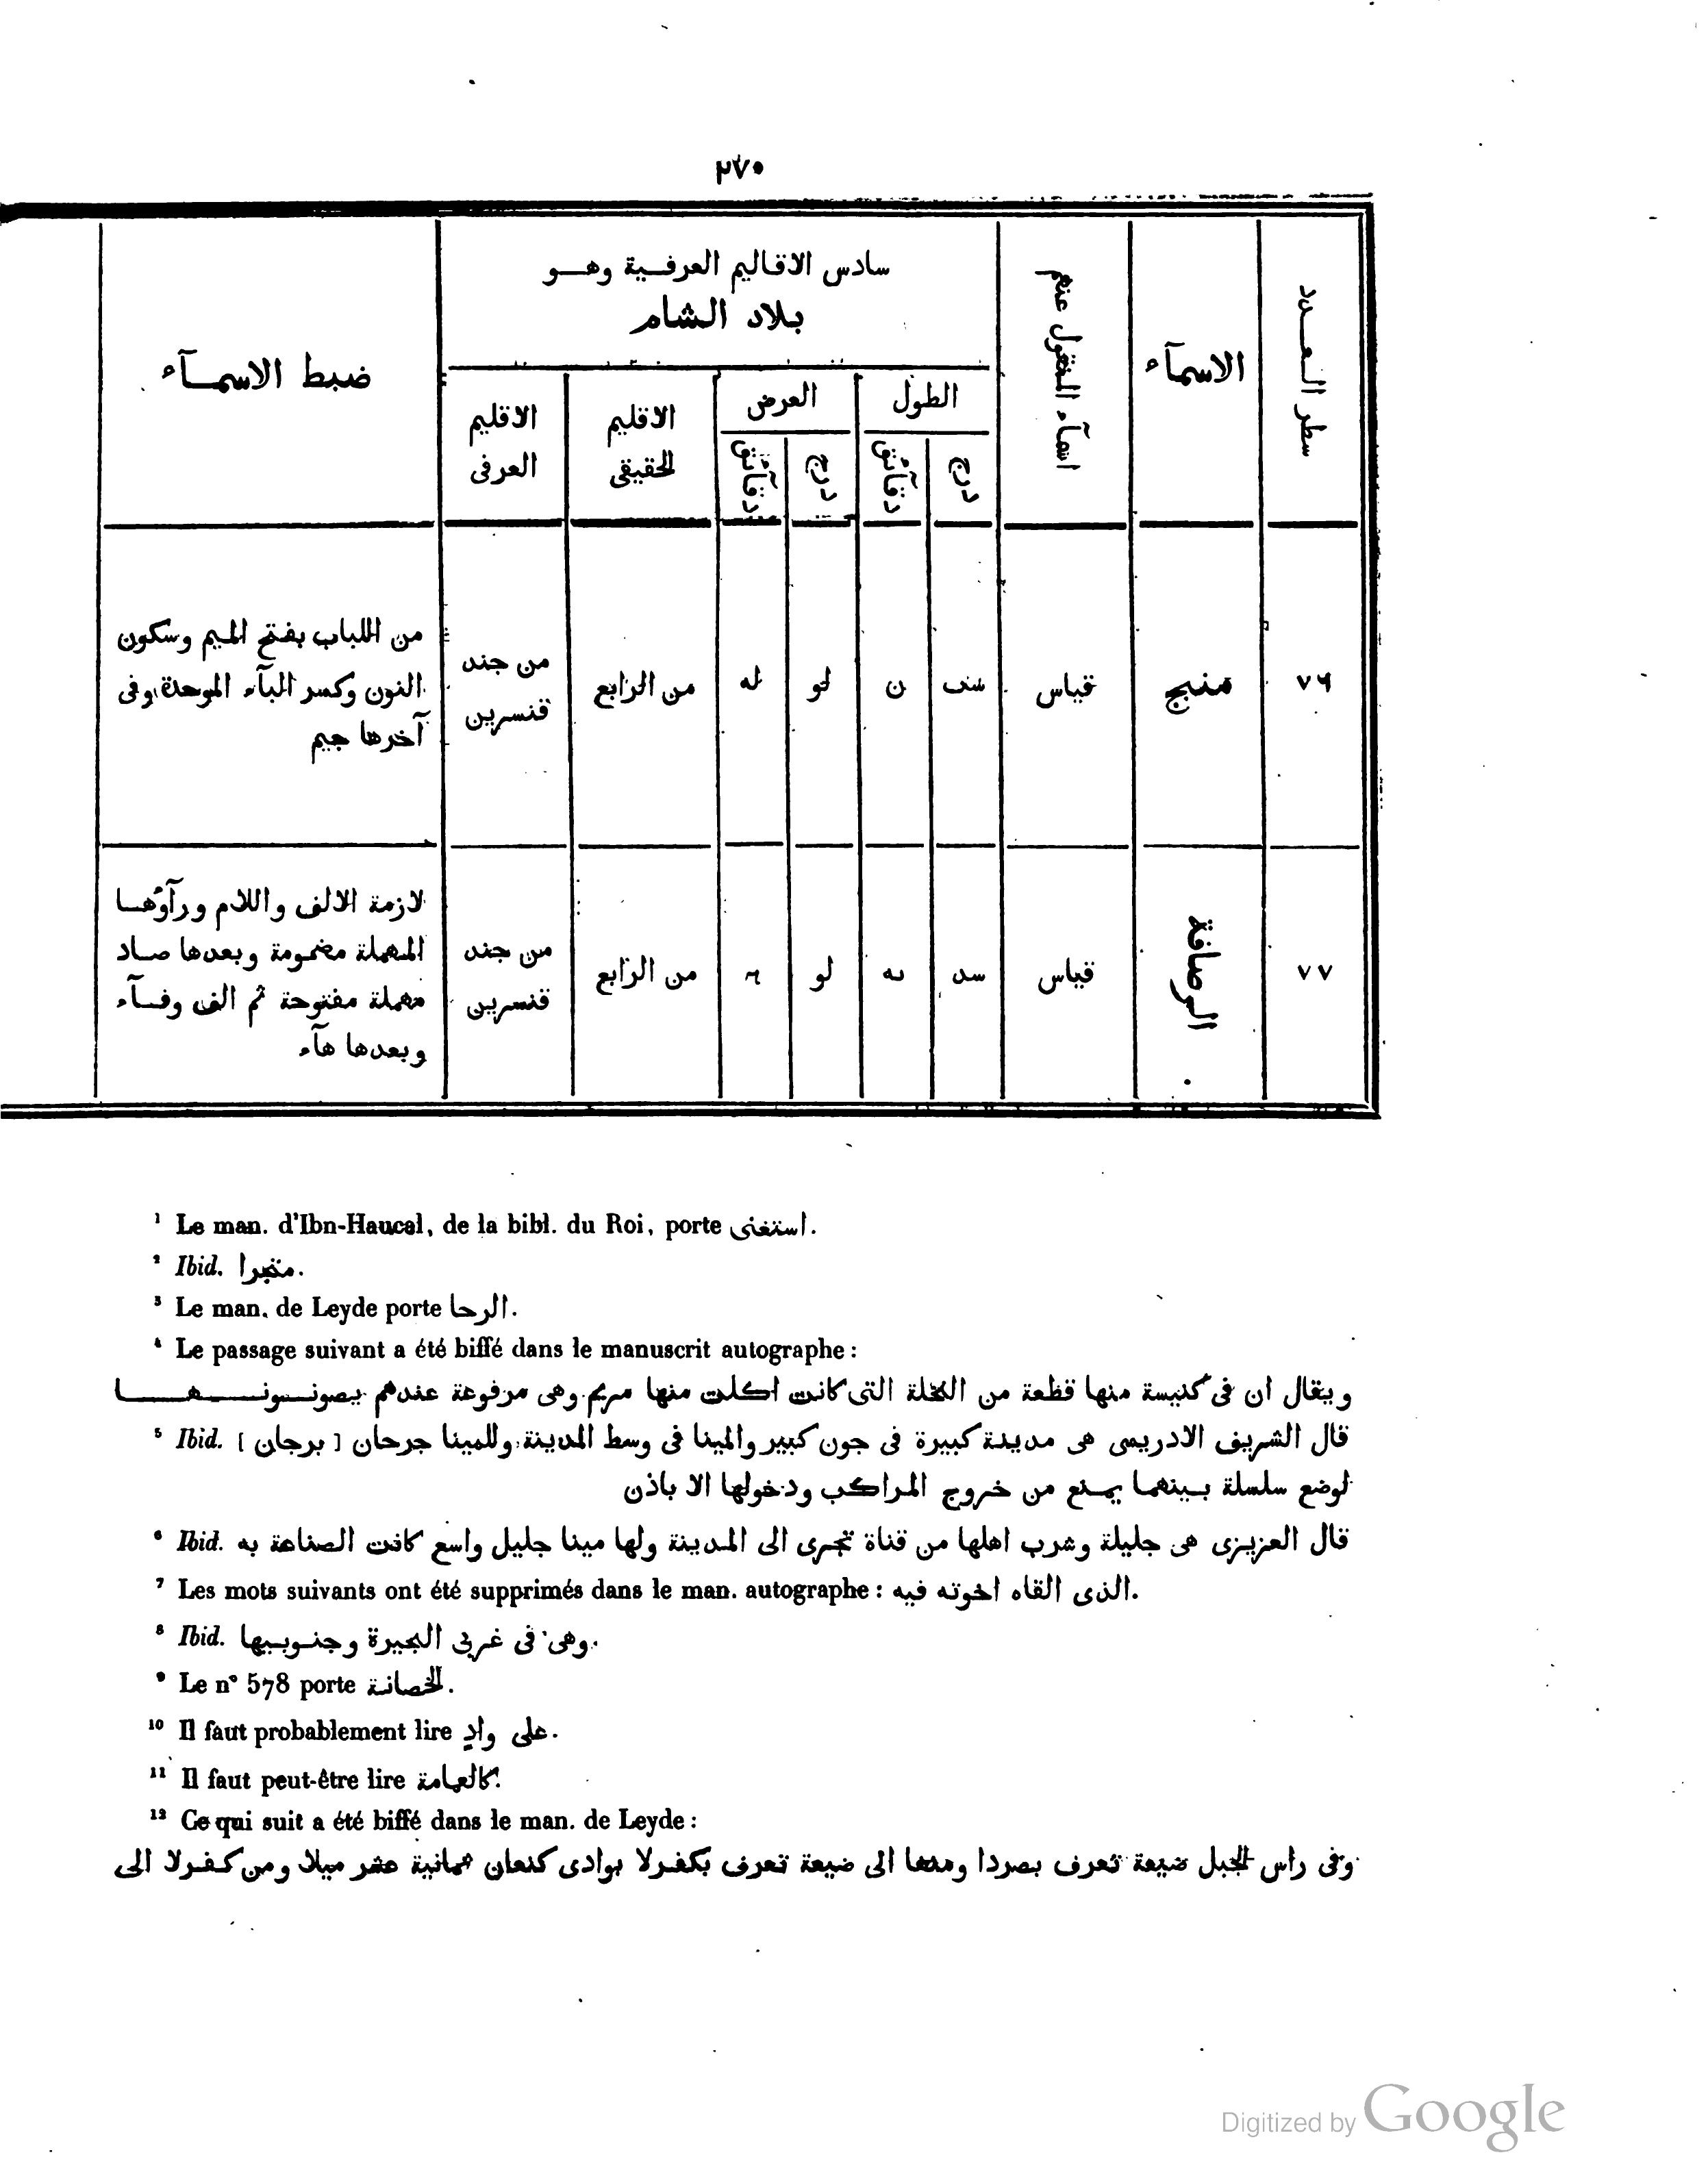 ٢٧٠
سطر العدد
الاسمآء
اسمآء المنقول عنهم
سادس الاقاليم العرفية وهو
بلاد الشام
الطول
درج
دقآئق
العرض
درج
دقآئق
الاقليم
الحقيقى
الاقليم
العرفى
ضبط الاسمآء
٧٦
منبج
قياس
ن
لو
له
من الرابع
من جند
قنسرين
من اللباب بفتح الميم وسكون
النون وكسر البآء الموحدة وفى
آخرها جيم
٧٧
الرصافة
قياس
سد
نه
لو
من الرابع
من جند
قنسرين
لازمة الالف واللام ورآؤها
المهملة مضمومة وبعدها صاد
مهملة مفتوحة ثم الف وفآء
وبعدها هآء
1 Le man. d'Ibn-Haucal, de la bibl. du Roi, porte استغنى.
2 Ibid. متجرا.
3 Le man. de Leyde porte الرحا.
4 Le passage suivant a été biffé dans le manuscrit autographe :
ويقال ان فى كنيسة منها قطعة من النخلة التى كانت اكلت منها مريم وهى مرفوعة عندهم يصونونها
5 Ibid. قال الشريف الادريسى هى مدينة كبيرة فى جون كبير والمينا فى وسط المدينة وللمينا جرحان [ برجان ]
لوضع سلسلة بينهما يمنع من خروج المراكب ودخولها الا باذن
6 Ibid. قال العزيزى هى جليلة وشرب اهلها من قناة تجرى الى المدينة ولها مينا جليل واسع كانت الصناعة به
7 Les mots suivants ont été supprimés dans le man. autographe : الذى القاه اخوته فيه.
8 Ibid. وهى فى غربى البحيرة وجنوبيها.
9 Le n° 578 porte الخصانة.
10 Il faut probablement lire على وادٍ.
11 Il faut peut-être lire كالعمامة.
12 Ce qui suit a été biffé dans le man. de Leyde :
وفى راس الجبل ضيعة تعرف بصردا ومنها الى ضيعة تعرف بكفرلا بوادى كنعان ثمانية عشر ميلا ومن كفرلا الى
Digitized by Google